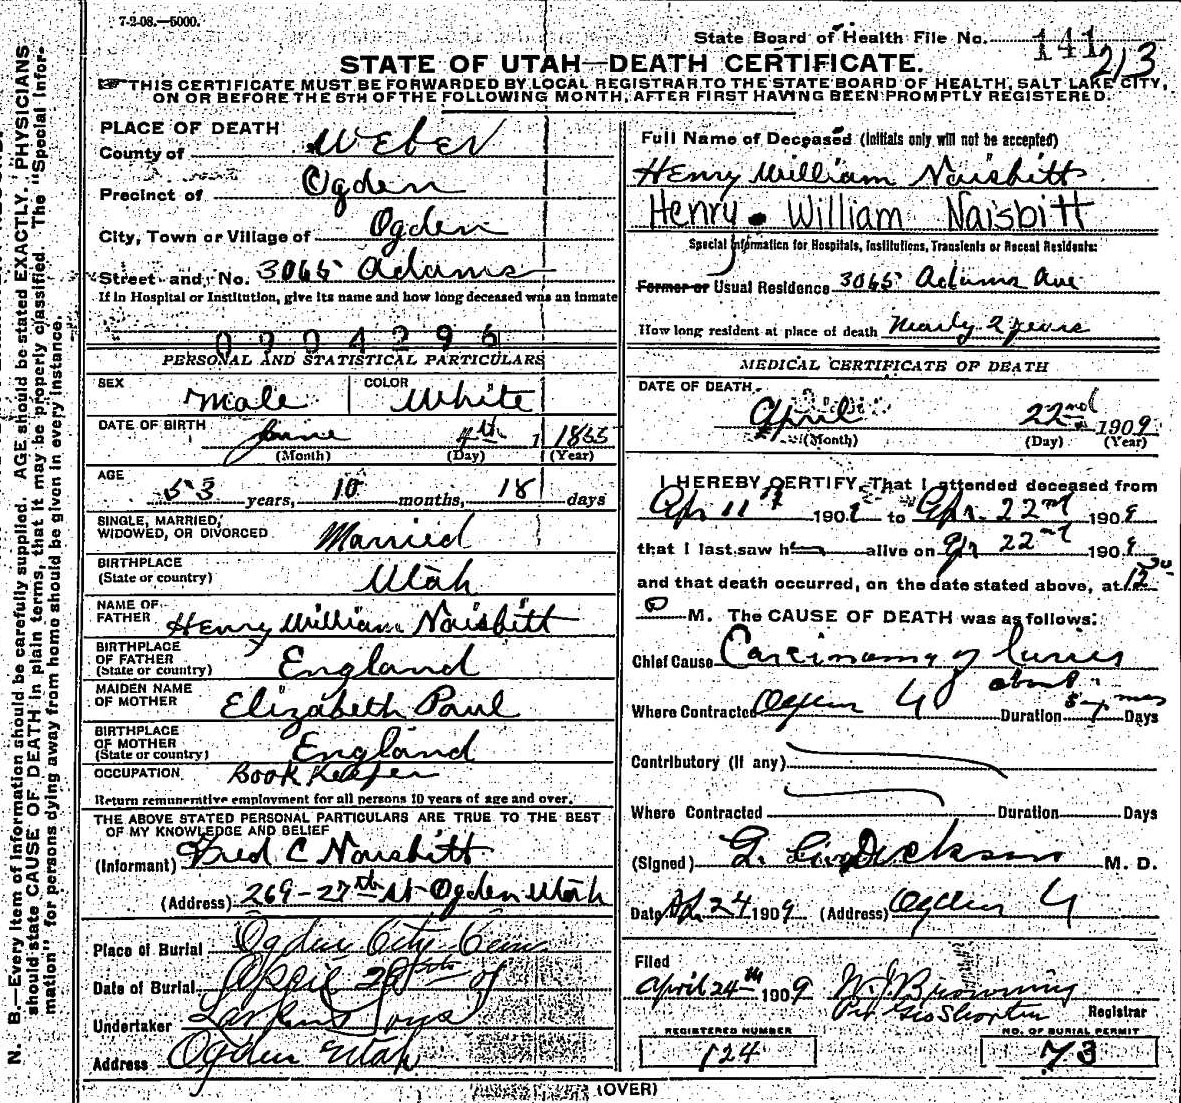 7-2-08.—5000.
State Board of Health File No. 141
213
STATE OF UTAH—DEATH CERTIFICATE.
THIS CERTIFICATE MUST BE FORWARDED BY LOCAL REGISTRAR TO THE STATE BOARD OF HEALTH, SALT LAKE CITY,
ON OR BEFORE THE 5TH OF THE FOLLOWING MONTH, AFTER FIRST HAVING BEEN PROMPTLY REGISTERED.
N. B.—Every item of information should be carefully supplied. AGE should be stated EXACTLY. PHYSICIANS
should state CAUSE OF DEATH in plain terms, that it may be properly classified. The "Special Infor-
mation" for persons dying away from home should be given in every instance.
PLACE OF DEATH
County of Weber
Precinct of Ogden
City, Town or Village of Ogden
Street and No. 3065 Adams
If in Hospital or Institution, give its name and how long deceased was an inmate
0904296
PERSONAL AND STATISTICAL PARTICULARS
SEX Male COLOR White
DATE OF BIRTH June 4th 1855
(Month) (Day) (Year)
AGE 53 years, 10 months, 18 days
SINGLE, MARRIED,
WIDOWED, OR DIVORCED Married
BIRTHPLACE
(State or country) Utah
NAME OF
FATHER Henry William Naisbitt
BIRTHPLACE
OF FATHER
(State or country) England
MAIDEN NAME
OF MOTHER Elizabeth Paul
BIRTHPLACE
OF MOTHER
(State or country) England
OCCUPATION Book Keeper
Return remunerative employment for all persons 10 years of age and over.
THE ABOVE STATED PERSONAL PARTICULARS ARE TRUE TO THE BEST
OF MY KNOWLEDGE AND BELIEF
(Informant) Fred C Naisbitt
(Address) 269-27th St Ogden Utah
Place of Burial Ogden City Cem
Date of Burial April
Undertaker Larkin Sons
Address Ogden Utah
Full Name of Deceased (Initials only will not be accepted)
Henry William Naisbitt
Henry William Naisbitt
Special Information for Hospitals, Institutions, Transients or Recent Residents:
Former or Usual Residence 3065 Adams Ave
How long resident at place of death Nearly 2 years
MEDICAL CERTIFICATE OF DEATH
DATE OF DEATH
April 22nd 1909
(Month) (Day) (Year)
I HEREBY CERTIFY, That I attended deceased from
Apr 11th 1909 to Apr. 22nd 1909
that I last saw him alive on Apr 22nd 1909
and that death occurred, on the date stated above, at 12
M. The CAUSE OF DEATH was as follows:
Chief Cause Carcinoma of
about
Where Contracted Ogden U Duration mos Days
Contributory (If any)
Where Contracted Duration Days
(Signed) Dickson M. D.
Date Ap. 24 1909 (Address) Ogden U
Filed
April 24th 1909 W. J. Browning
Per Geo Shorten Registrar
REGISTERED NUMBER NO. OF BURIAL PERMIT
124 73
(OVER)